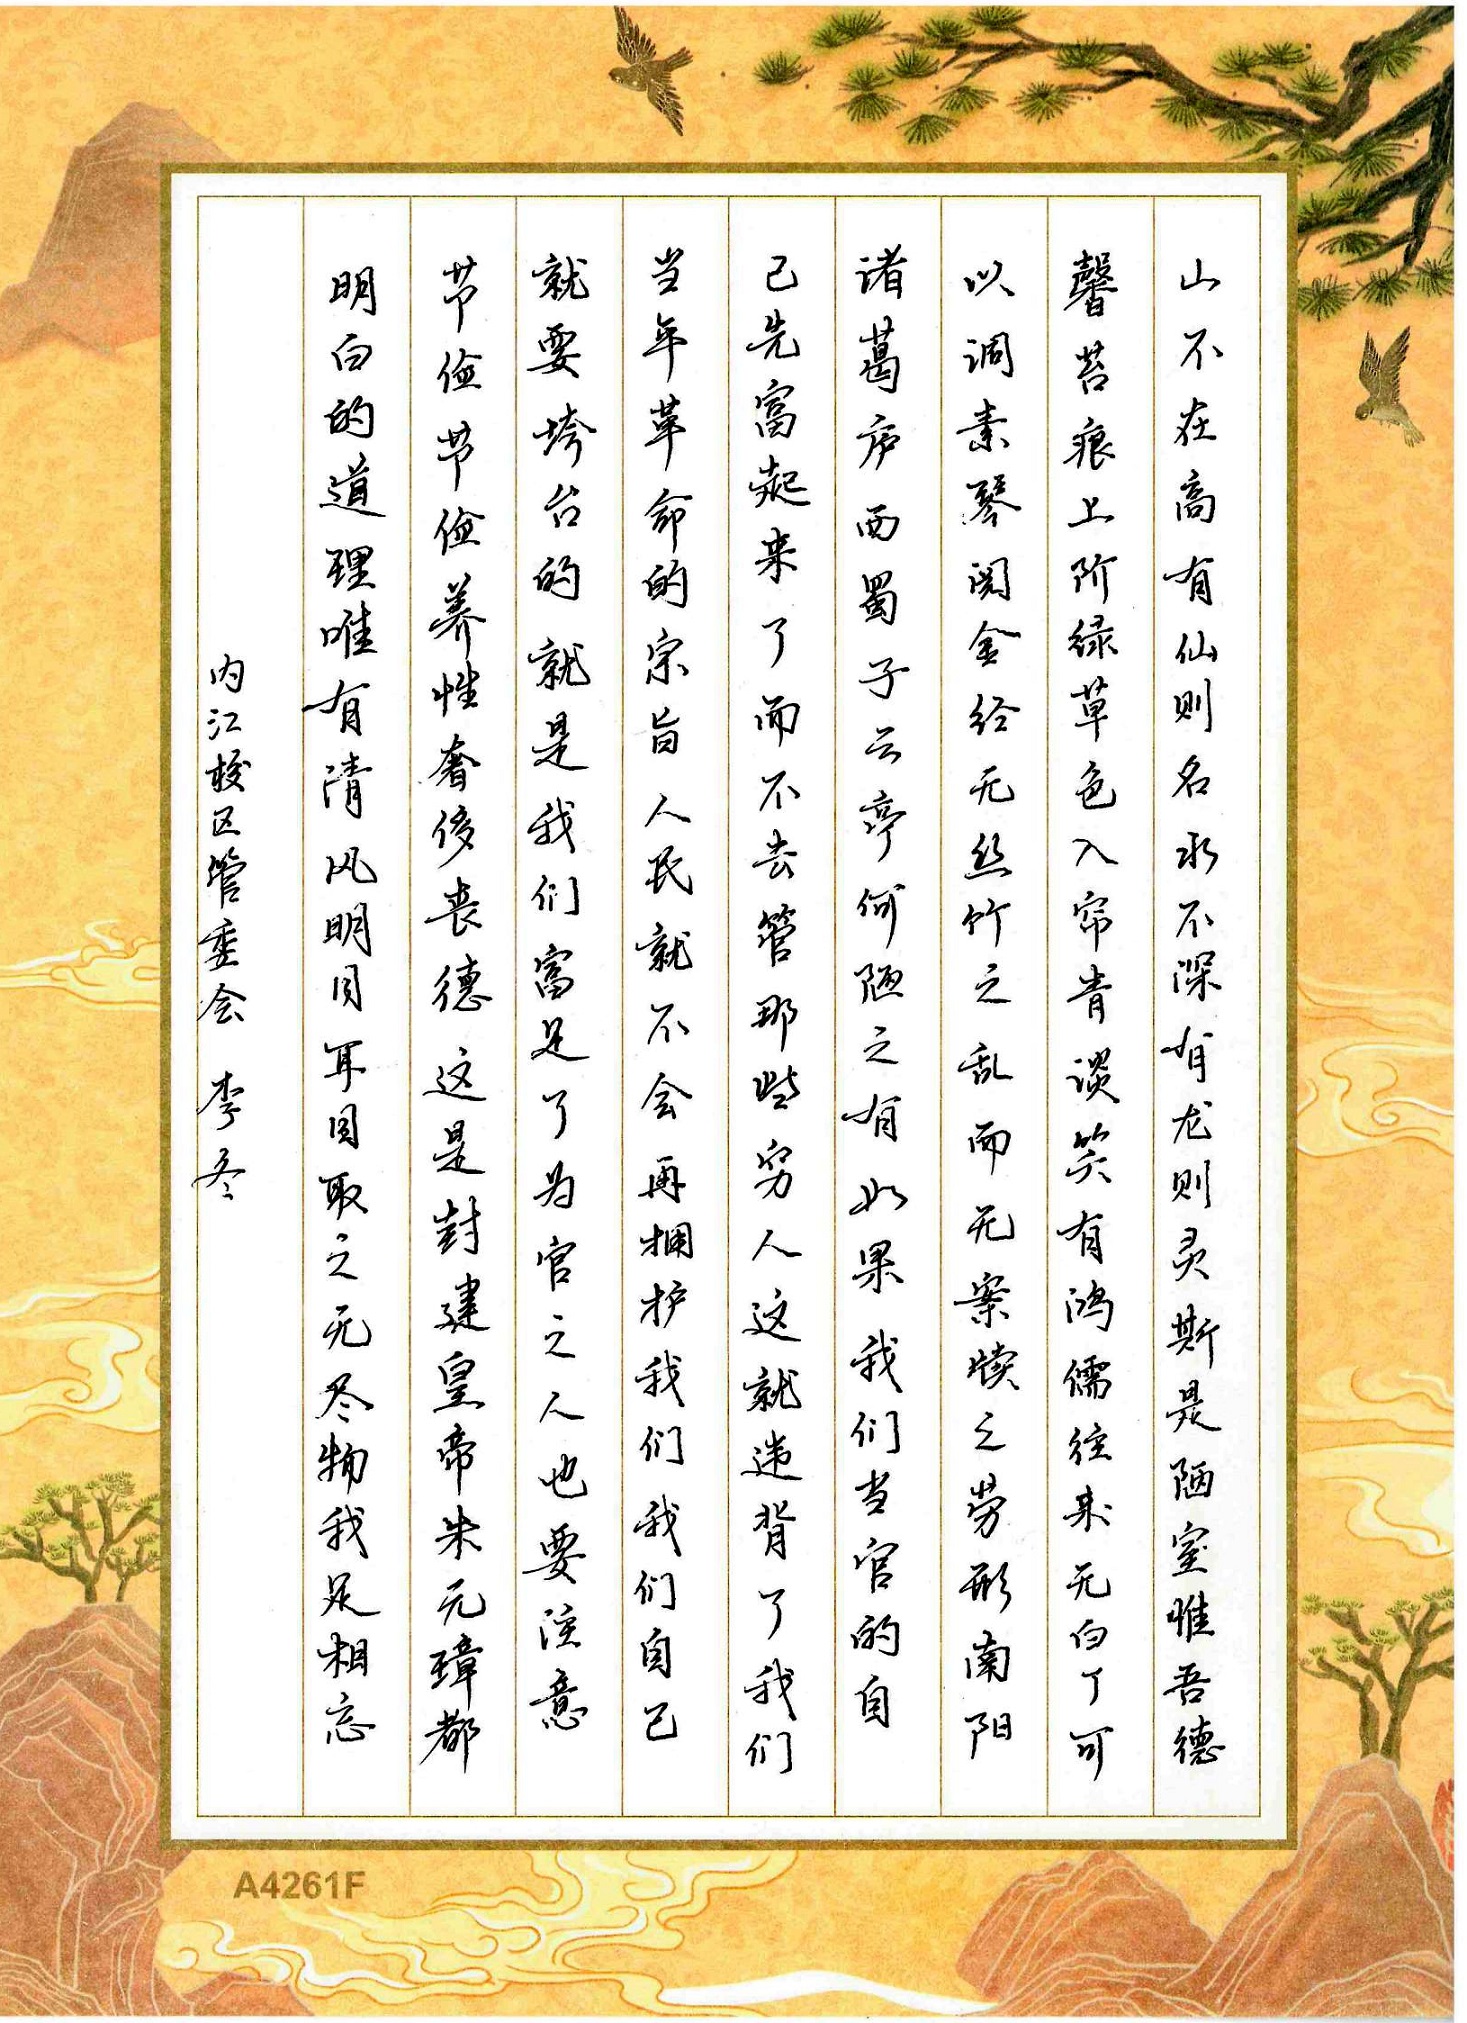 山不在高有仙则名水不深有龙则灵斯是陋室惟吾德
馨苔痕上阶绿草色入帘青谈笑有鸿儒往来无白丁可
以调素琴阅金经无丝竹之乱而无案牍之劳形南阳
诸葛庐西蜀子云亭何陋之有如果我们当官的自
己先富起来了而不去管那些穷人这就违背了我们
当年革命的宗旨人民就不会再拥护我们我们自己
就要垮台的就是我们富足了为官之人也要注意
节俭节俭养性奢侈丧德这是封建皇帝朱元璋都
明白的道理唯有清风明月耳目取之无尽物我足相忘
内江校区管委会 李冬
A4261F